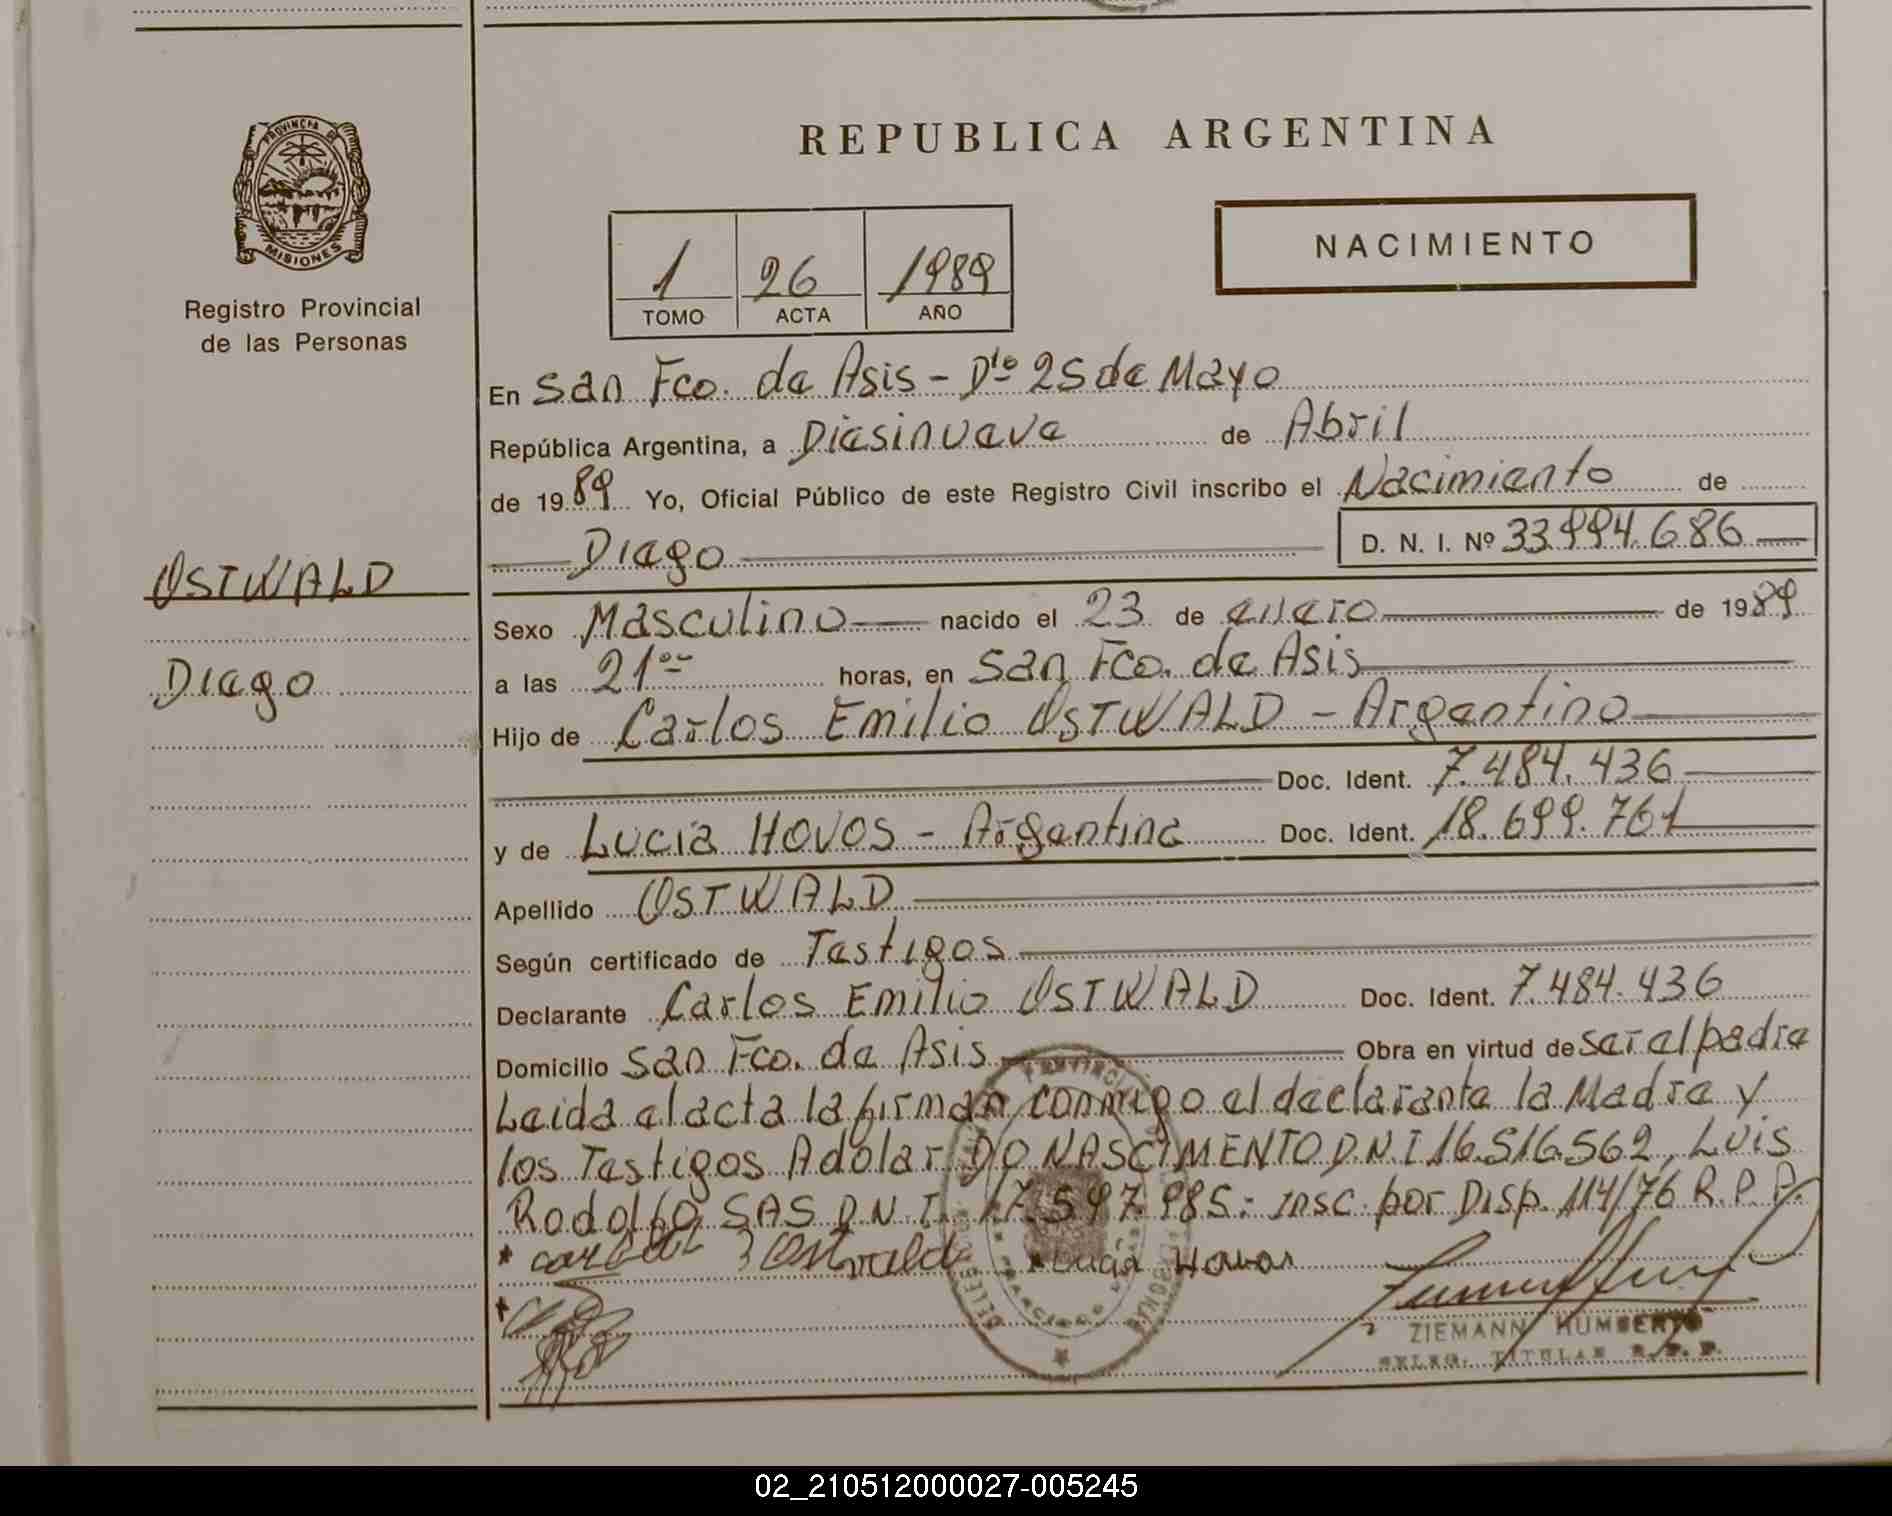 REPUBLICA ARGENTINA
PROVINCIA DE
MISIONES
Registro Provincial
de las Personas
NACIMIENTO
1 26 1989
TOMO ACTA AÑO
En San Fco. de Asis - Dto 25 de Mayo
República Argentina, a Diesinueve de Abril
de 1989 Yo, Oficial Público de este Registro Civil inscribo el Nacimiento de
Diego D. N. I. Nº 33.994.686
OSTWALD
Diego
Sexo Masculino nacido el 23 de enero de 1989
a las 21 oo horas, en San Fco. de Asis
Hijo de Carlos Emilio OSTWALD - Argentino
Doc. Ident. 7.484.436
y de Lucia HOVOS - Argentina Doc. Ident. 18.699.761
Apellido OSTWALD
Según certificado de Testigos
Declarante Carlos Emilio OSTWALD Doc. Ident. 7.484.436
Domicilio San Fco. de Asis Obra en virtud de ser el padre
Leida el acta la firman conmigo el declarante la Madre y
los Testigos Adolar DO NASCIMENTO D.N.I 16.516.562, Luis
Rodolfo SAS D.N.I. 17.597.985.- insc. por Disp. 114/76 R.P.P.
Ostwald Lucia Hovos
ZIEMANN HUMBERTO
DELEG. TITULAR R.P.P.
02_210512000027-005245